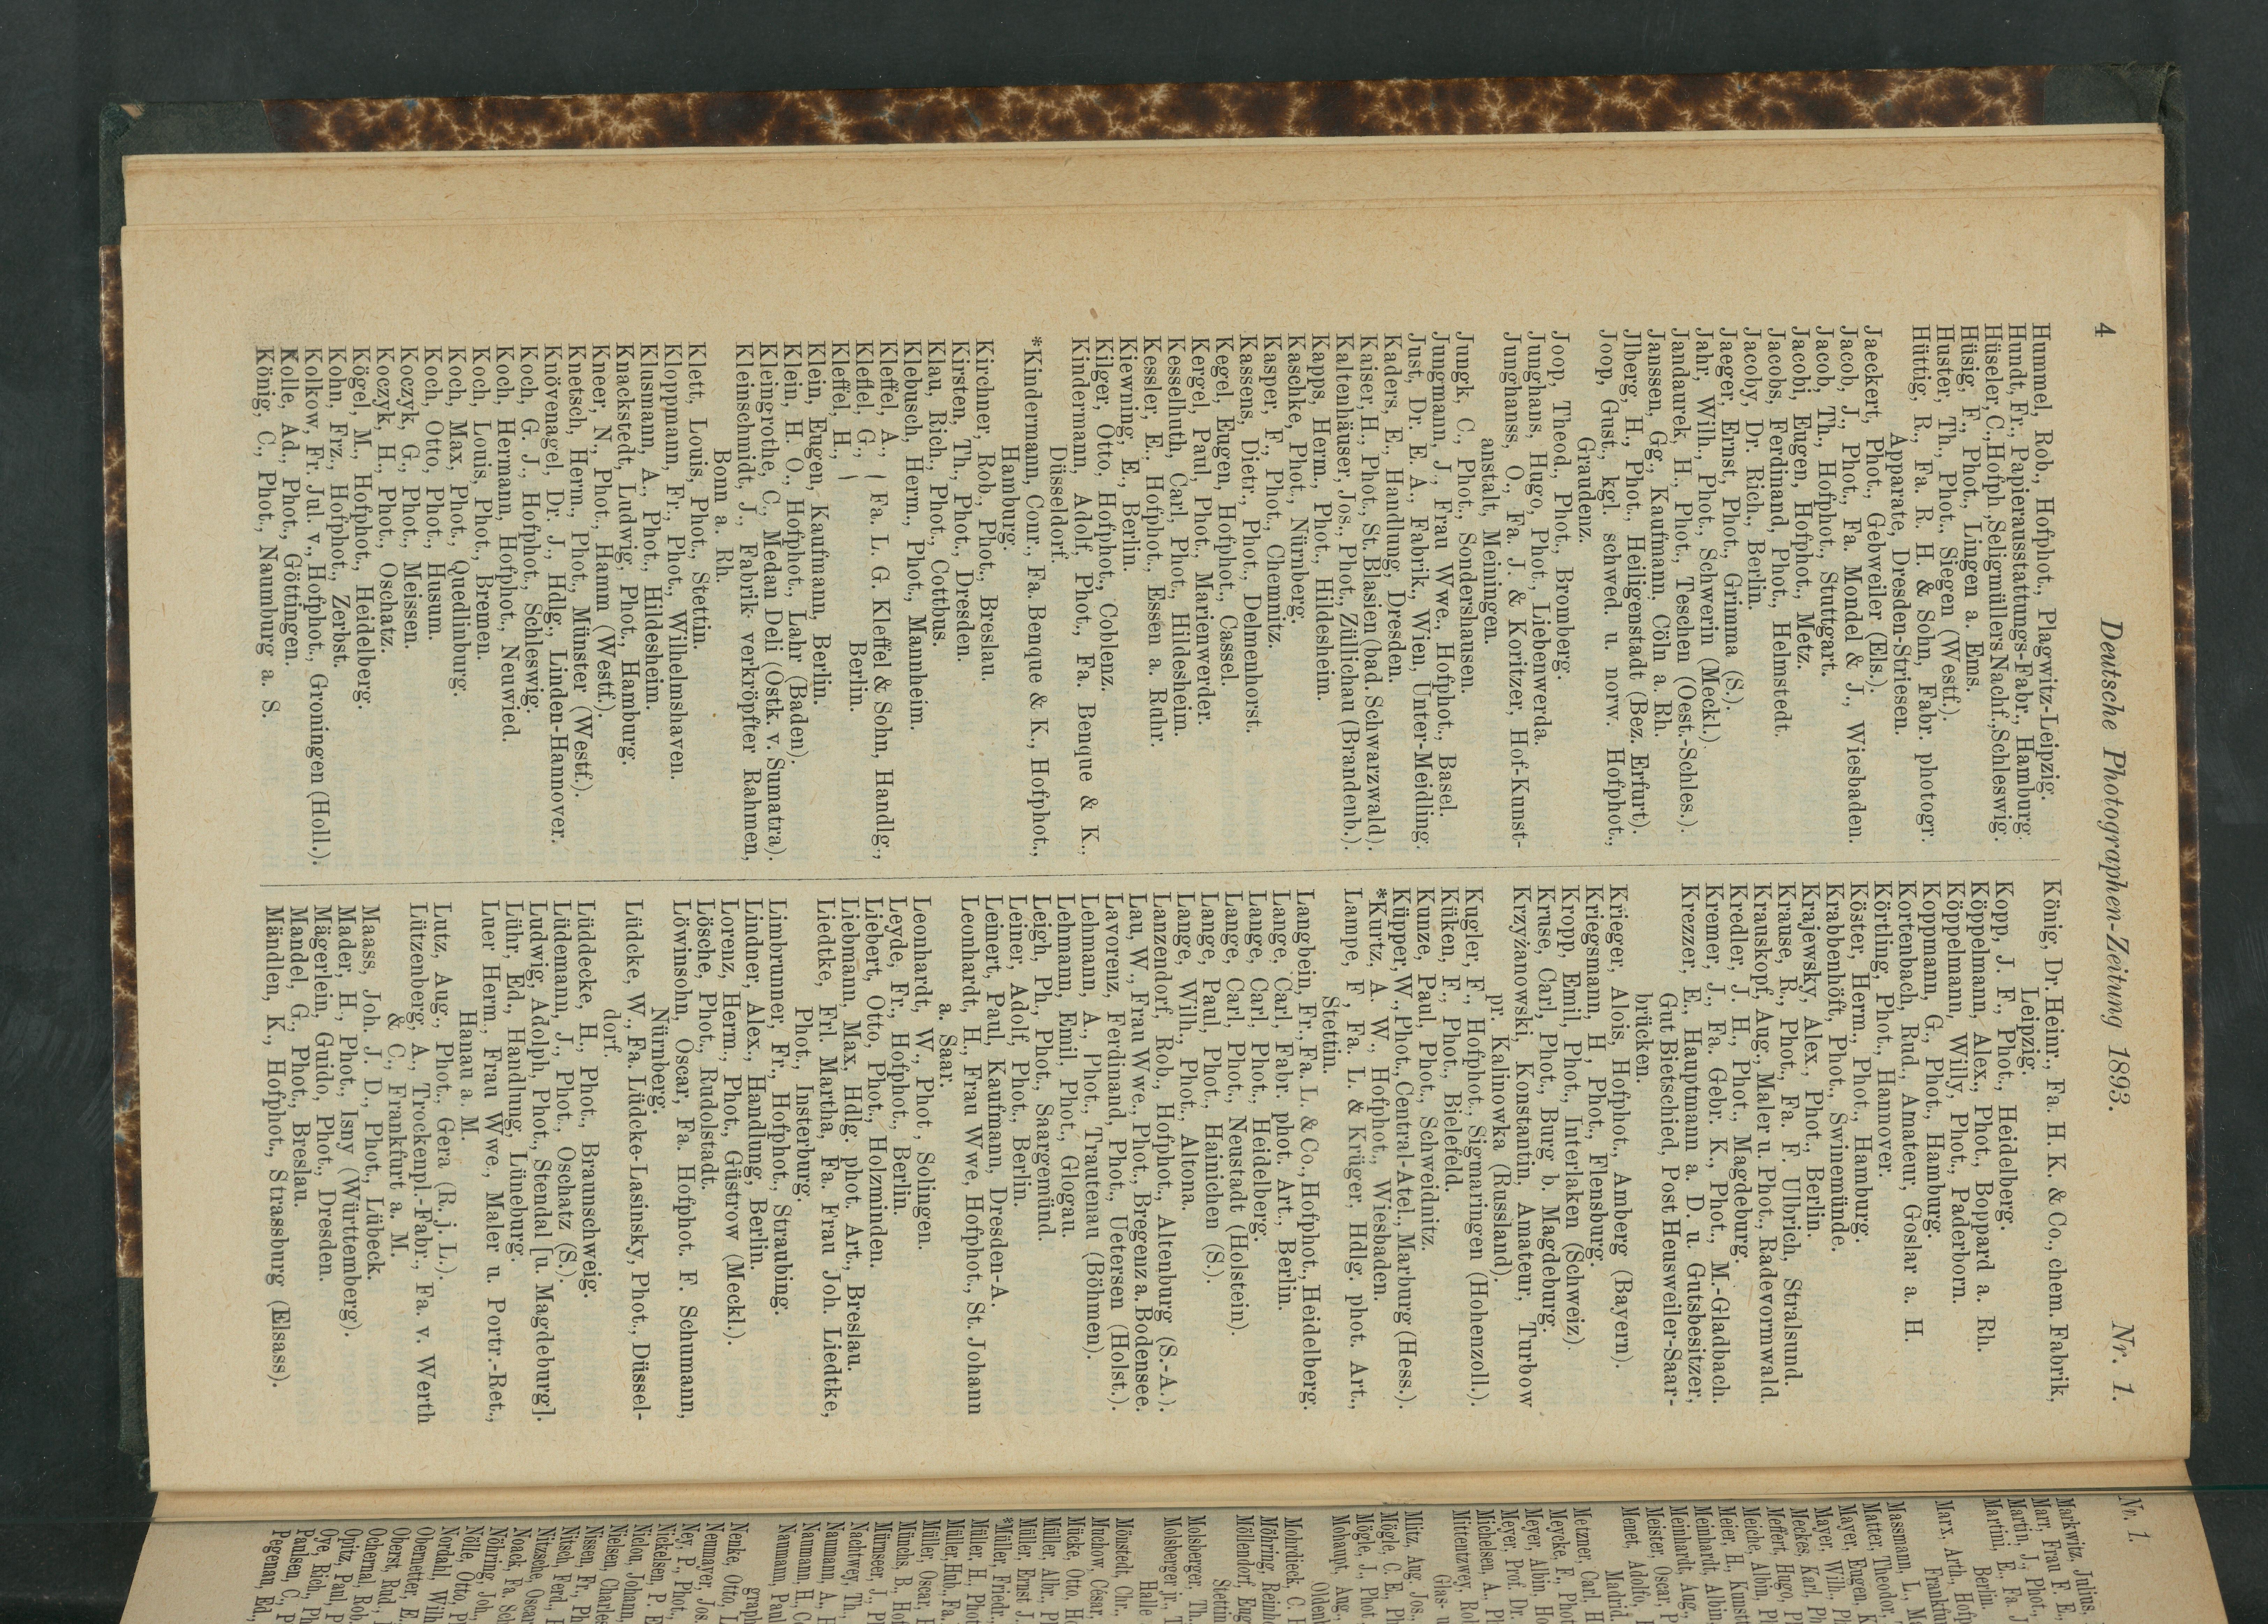 4
Deutsche Photographen-Zeitung 1893.
Nr. 1.
Hummel, Rob., Hofphot., Plagwitz-Leipzig.
Hundt, Fr., Papierausstattungs-Fabr., Hamburg.
Hüseler, C., Hofph., Seligmüllers Nachf., Schleswig.
Hüsig, F., Phot., Lingen a. Ems.
Huster, Th., Phot., Siegen (Westf.).
Hüttig, R., Fa. R. H. & Sohn, Fabr. photogr.
Apparate, Dresden-Striesen.
Jaeckert, Phot., Gebweiler (Els.).
Jacob, J., Phot., Fa. Mondel & J., Wiesbaden.
Jacob, Th., Hofphot., Stuttgart.
Jacobi, Eugen, Hofphot., Metz.
Jacobs, Ferdinand, Phot., Helmstedt.
Jacoby, Dr. Rich., Berlin.
Jaeger, Ernst, Phot., Grimma (S.).
Jahr, Wilh., Phot., Schwerin (Meckl.)
Jandaurek, H., Phot., Teschen (Oest.-Schles.).
Janssen, Gg., Kaufmann, Cöln a. Rh.
Jlberg, H., Phot., Heiligenstadt (Bez. Erfurt).
Joop, Gust., kgl. schwed. u. norw. Hofphot.,
Graudenz.
Joop, Theod., Phot., Bromberg.
Junghans, Hugo, Phot., Liebenwerda.
Junghanss, O., Fa. J. & Koritzer, Hof-Kunst-
anstalt, Meiningen.
Jungk, C., Phot., Sondershausen.
Jungmann, J., Frau Wwe., Hofphot., Basel.
Just, Dr. E. A., Fabrik., Wien, Unter-Meidling.
Kaders, E., Handlung, Dresden.
Kaiser, H., Phot., St. Blasien (bad. Schwarzwald).
Kaltenhäuser, Jos., Phot., Züllichau (Brandenb.).
Kapps, Herm., Phot., Hildesheim.
Kaschke, Phot., Nürnberg.
Kasper, F., Phot., Chemnitz.
Kassens, Dietr., Phot., Delmenhorst.
Kegel, Eugen, Hofphot., Cassel.
Kergel, Paul, Phot., Marienwerder.
Kesselhuth, Carl, Phot., Hildesheim.
Kessler, E., Hofphot., Essen a. Ruhr.
Kiewning, E., Berlin.
Kilger, Otto, Hofphot., Coblenz.
Kindermann, Adolf, Phot., Fa. Benque & K.,
Düsseldorf.
*Kindermann, Conr., Fa. Benque & K., Hofphot.,
Hamburg.
Kirchner, Rob., Phot., Breslau.
Kirsten, Th., Phot., Dresden.
Klau, Rich., Phot., Cottbus.
Klebusch, Herm., Phot., Mannheim.
Kleffel, A., 
Kleffel, G., } Fa. L. G. Kleffel & Sohn, Handlg.,
Kleffel, H., } Berlin.
Klein, Eugen, Kaufmann, Berlin.
Klein, H. O., Hofphot., Lahr (Baden).
Kleingrothe, C., Medan Deli (Ostk. v. Sumatra).
Kleinschmidt, J., Fabrik verkröpfter Rahmen,
Bonn a. Rh.
Klett, Louis, Phot., Stettin.
Kloppmann, Fr., Phot., Wilhelmshaven.
Klusmann, A., Phot., Hildesheim.
Knackstedt, Ludwig, Phot., Hamburg.
Kneer, N., Phot., Hamm (Westf.).
Knetsch, Herm., Phot., Münster (Westf.).
Knövenagel, Dr. J., Hdlg., Linden-Hannover.
Koch, G. J., Hofphot., Schleswig.
Koch, Hermann, Hofphot., Neuwied.
Koch, Louis, Phot., Bremen.
Koch, Max, Phot., Quedlinburg.
Koch, Otto, Phot., Husum.
Koczyk, G., Phot., Meissen.
Koczyk, H., Phot., Oschatz.
Kögel, M., Hofphot., Heidelberg.
Kohn, Frz., Hofphot., Zerbst.
Kolkow, Fr. Jul. v., Hofphot., Groningen (Holl.).
Kolle, Ad., Phot., Göttingen.
König, C., Phot., Naumburg a. S.
König, Dr. Heinr., Fa. H. K. & Co., chem. Fabrik,
Leipzig.
Kopp, J. F., Phot., Heidelberg.
Köppelmann, Alex., Phot., Boppard a. Rh.
Köppelmann, Willy, Phot., Paderborn.
Koppmann, G., Phot., Hamburg.
Kortenbach, Rud., Amateur, Goslar a. H.
Körtling, Phot., Hannover.
Köster, Herm., Phot., Hamburg.
Krabbenhöft, Phot., Swinemünde.
Krajewsky, Alex., Phot., Berlin.
Krause, R., Phot., Fa. F. Ulbrich, Stralsund.
Krauskopf, Aug., Maler u. Phot., Radevormwald.
Kredler, J. H., Phot., Magdeburg.
Kremer, J., Fa. Gebr. K., Phot., M.-Gladbach.
Krezzer, E., Hauptmann a. D. u. Gutsbesitzer,
Gut Bietschied, Post Heusweiler-Saar-
brücken.
Krieger, Alois, Hofphot., Amberg (Bayern).
Kriegsmann, H, Phot., Flensburg.
Kropp, Emil, Phot., Interlaken (Schweiz).
Kruse, Carl, Phot., Burg b. Magdeburg.
Krzyżanowski, Konstantin, Amateur, Turbow
pr. Kalinowka (Russland).
Kugler, F., Hofphot., Sigmaringen (Hohenzoll.).
Küken, F., Phot., Bielefeld.
Kunze, Paul, Phot., Schweidnitz.
Küpper, W., Phot., Central-Atel., Marburg (Hess.).
*Kurtz, A. W., Hofphot., Wiesbaden.
Lampe, F, Fa. L. & Krüger, Hdlg. phot. Art.,
Stettin.
Langbein, Fr., Fa. L. & Co., Hofphot., Heidelberg.
Lange, Carl, Fabr. phot. Art., Berlin.
Lange, Carl, Phot., Heidelberg.
Lange, Carl, Phot., Neustadt (Holstein).
Lange, Paul, Phot., Hainichen (S.).
Lange, Wilh., Phot., Altona.
Lanzendorf, Rob., Hofphot., Altenburg (S.-A.).
Lau, W., Frau Wwe., Phot., Bregenz a. Bodensee.
Lavorenz, Ferdinand, Phot., Uetersen (Holst.).
Lehmann, A., Phot., Trautenau (Böhmen).
Lehmann, Emil, Phot., Glogau.
Leigh, Ph., Phot., Saargemünd.
Leiner, Adolf, Phot., Berlin.
Leinert, Paul, Kaufmann, Dresden-A.
Leonhardt, H., Frau Wwe, Hofphot., St. Johann
a. Saar.
Leonhardt, W., Phot, Solingen.
Leyde, Fr., Hofphot., Berlin.
Liebert, Otto, Phot., Holzminden.
Liebmann, Max, Hdlg. phot. Art., Breslau.
Liedtke, Frl. Martha, Fa. Frau Joh. Liedtke,
Phot., Insterburg.
Limbrunner, Fr., Hofphot., Straubing.
Lindner, Alex., Handlung, Berlin.
Lorenz, Herm., Phot., Güstrow (Meckl.).
Lösche, Phot., Rudolstadt.
Löwinsohn, Oscar, Fa. Hofphot. F. Schumann,
Nürnberg.
Lüdcke, W., Fa. Lüdcke-Lasinsky, Phot., Düssel-
dorf.
Lüddecke, H., Phot., Braunschweig.
Lüdemann, J., Phot., Oschatz (S.).
Ludwig, Adolph, Phot., Stendal [u. Magdeburg].
Lühr, Ed., Handlung, Lüneburg.
Luer Herm., Frau Wwe., Maler u. Portr.-Ret.,
Hanau a. M.
Lutz, Aug., Phot., Gera (R. j. L.).
Lützenberg, A., Trockenpl.-Fabr., Fa. v. Werth
& C., Frankfurt a. M.
Maass, Joh. J. D., Phot., Lübeck.
Mader, H., Phot., Isny (Württemberg).
Mägerlein, Guido, Phot., Dresden.
Mandel, G., Phot., Breslau.
Mändlen, K., Hofphot., Strassburg (Elsass).
Nr. 1.
Markwitz, Julius
Marr, Frau F. E.
Martin, J., Phot.,
Martini, E., Fa. J
Berlin.
Marx. Arth., Hofp
Frankfu
Massmann, L., M
Matter, Theodor,
Mayer, Eugen, K
Mayer, Wilh., Ph
Meckes, Karl Ph
Meffert, Hugo, Ph
Meiche, Albin, Ph
Meier, H., Kunst
Meinhardt, Albin,
Meinhardt, Aug.,
Meister, Oscar, P
Menet, Adolfo,
Madrid.
Metzner, Carl, H
Meycke, F., Phot
Meyer, Albin, Ho
Meyer, Prof. Dr.
Michelsen, A., Ph
Mittentzwey, Rob
Glas- u
Mlitz, Aug. Jos.,
Mögle, C. E., Ph
Mögle, J., Phot.
Mohaupt, Aug.,
Oldenb
Mohrdieck, C. F
Möhring, Reinho
Möllendorf, Eug
Stettin
Molsberger, Th.
Molsberger jr., T
Halle
Mönstedt, Chr.,
Muchow, Cäsar,
Mücke, Otto, Ho
Müller, Albr., Ph
Müller, Ernst J.
*Müller, Friedr.,
Müller, H., Phot
Müller, Hub. Fa.
Müller, Oscar, P
Münchs, B., Hof
Mürnseer, J., Ph
Nachtwey, Th.,
Naumann, A., F
Naumann, H., C
Naumann, Paul
graph
Nenke, Otto, L
Neumayer, Jos.
Ney, P., Phot.,
Nickelsen, P. E
Nielou, Johann,
Nielsen, Charles
Nissen, Fr., Ph
Nitsch, Ferd., P
Nitzsche, Oscar
Noack, Fa. Sch
Nöhring, Joh.,
Nölle, Otto, P
Nordahl, Wilh
Obernetter, E.
Oberst, Rud.,
Ochernal, Rob.
Opitz, Paul, P
Oye, Rich., Ph
Paulsen, C., P
Pegenau, Ed.,